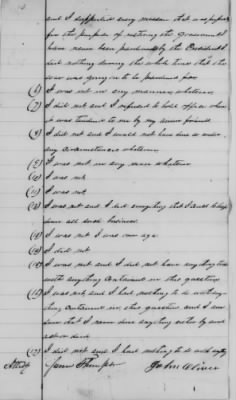 and I
for the purpose of restoring the Government I
have never been pardoned by the President I
did nothing during the whole time that the
war was going on to be pardoned for
(6) I was not in any manner whatever
(7) I did not and I refused to hold office when
it was tendered to me by my union friends
(8) I did not and I would not have done so under
any circumstances whatever
(9) I was not in any manner whatever
(10) I was not
(11) I was not
(12) I was not and I did everything that I could to keep
down all such business
(13) I was not I was over age
(14) I did not
(15) I was not and I did not have anything to do
with anything contained in this question
(16) I was not, and I had nothing to do with any
thing contained in this question and I
that I never done anything either by word
or
(17) I did not and I had nothing to do with
Attest James Thompson John Oliver